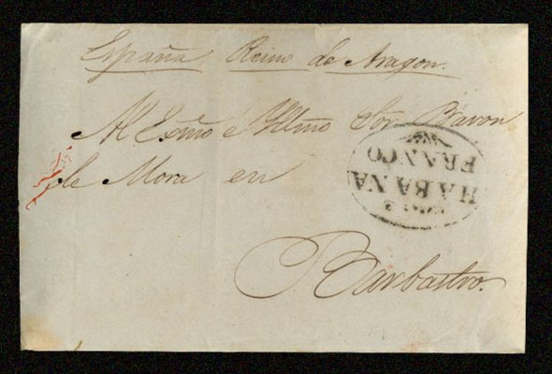 España Reino de Aragon.
Al Exmo e Yllmo Sor. Baron
de Mora en
Barbastro.
HABANA
FRANCO